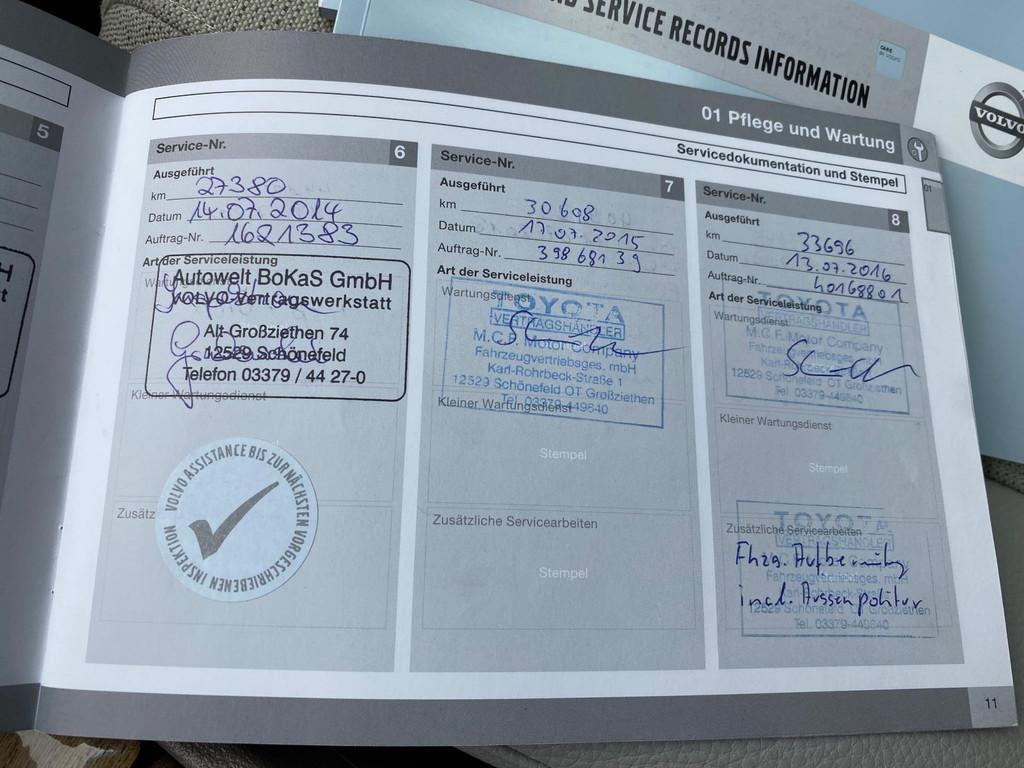 ND SERVICE RECORDS INFORMATION
CARE
BY VOLVO
VOLVO
01 Pflege und Wartung
01
Servicedokumentation und Stempel
5
Service-Nr. 6
Ausgeführt
km 27380
Datum 14.07.2014
Auftrag-Nr. 1621383
Art der Serviceleistung
Autowelt BoKaS GmbH
VOLVO-Vertragswerkstatt
Alt-Großziethen 74
12529 Schönefeld
Telefon 03379 / 44 27-0
Kleiner Wartungsdienst
VOLVO ASSISTANCE BIS ZUR NÄCHSTEN VORGESCHRIEBENEN INSPEKTION
Zusätz
Service-Nr. 7
Ausgeführt
km 30608
Datum 17.07.2015
Auftrag-Nr. 39868139
Art der Serviceleistung
Wartungsdienst
TOYOTA
VERTRAGSHÄNDLER
M.C.F. Motor Company
Fahrzeugvertriebsges. mbH
Karl-Rohrbeck-Straße 1
12529 Schönefeld OT Großziethen
Tel. 03379-449840
Kleiner Wartungsdienst
Stempel
Zusätzliche Servicearbeiten
Stempel
Service-Nr. 8
Ausgeführt
km 33696
Datum 13.07.2016
Auftrag-Nr. 40168801
Art der Serviceleistung
Wartungsdienst
TOYOTA
VERTRAGSHÄNDLER
M.C.F. Motor Company
12529 Schönefeld OT Großziethen
Tel. 03379-449840
Kleiner Wartungsdienst
Stempel
Zusätzliche Servicearbeiten
TOYOTA
VERTRAGSHÄNDLER
Fhzg. Aufbereitung
Fahrzeugvertriebsges. mbH
incl. Aussenpolitur
12529 Schönefeld OT Großziethen
Tel. 03379-449840
11